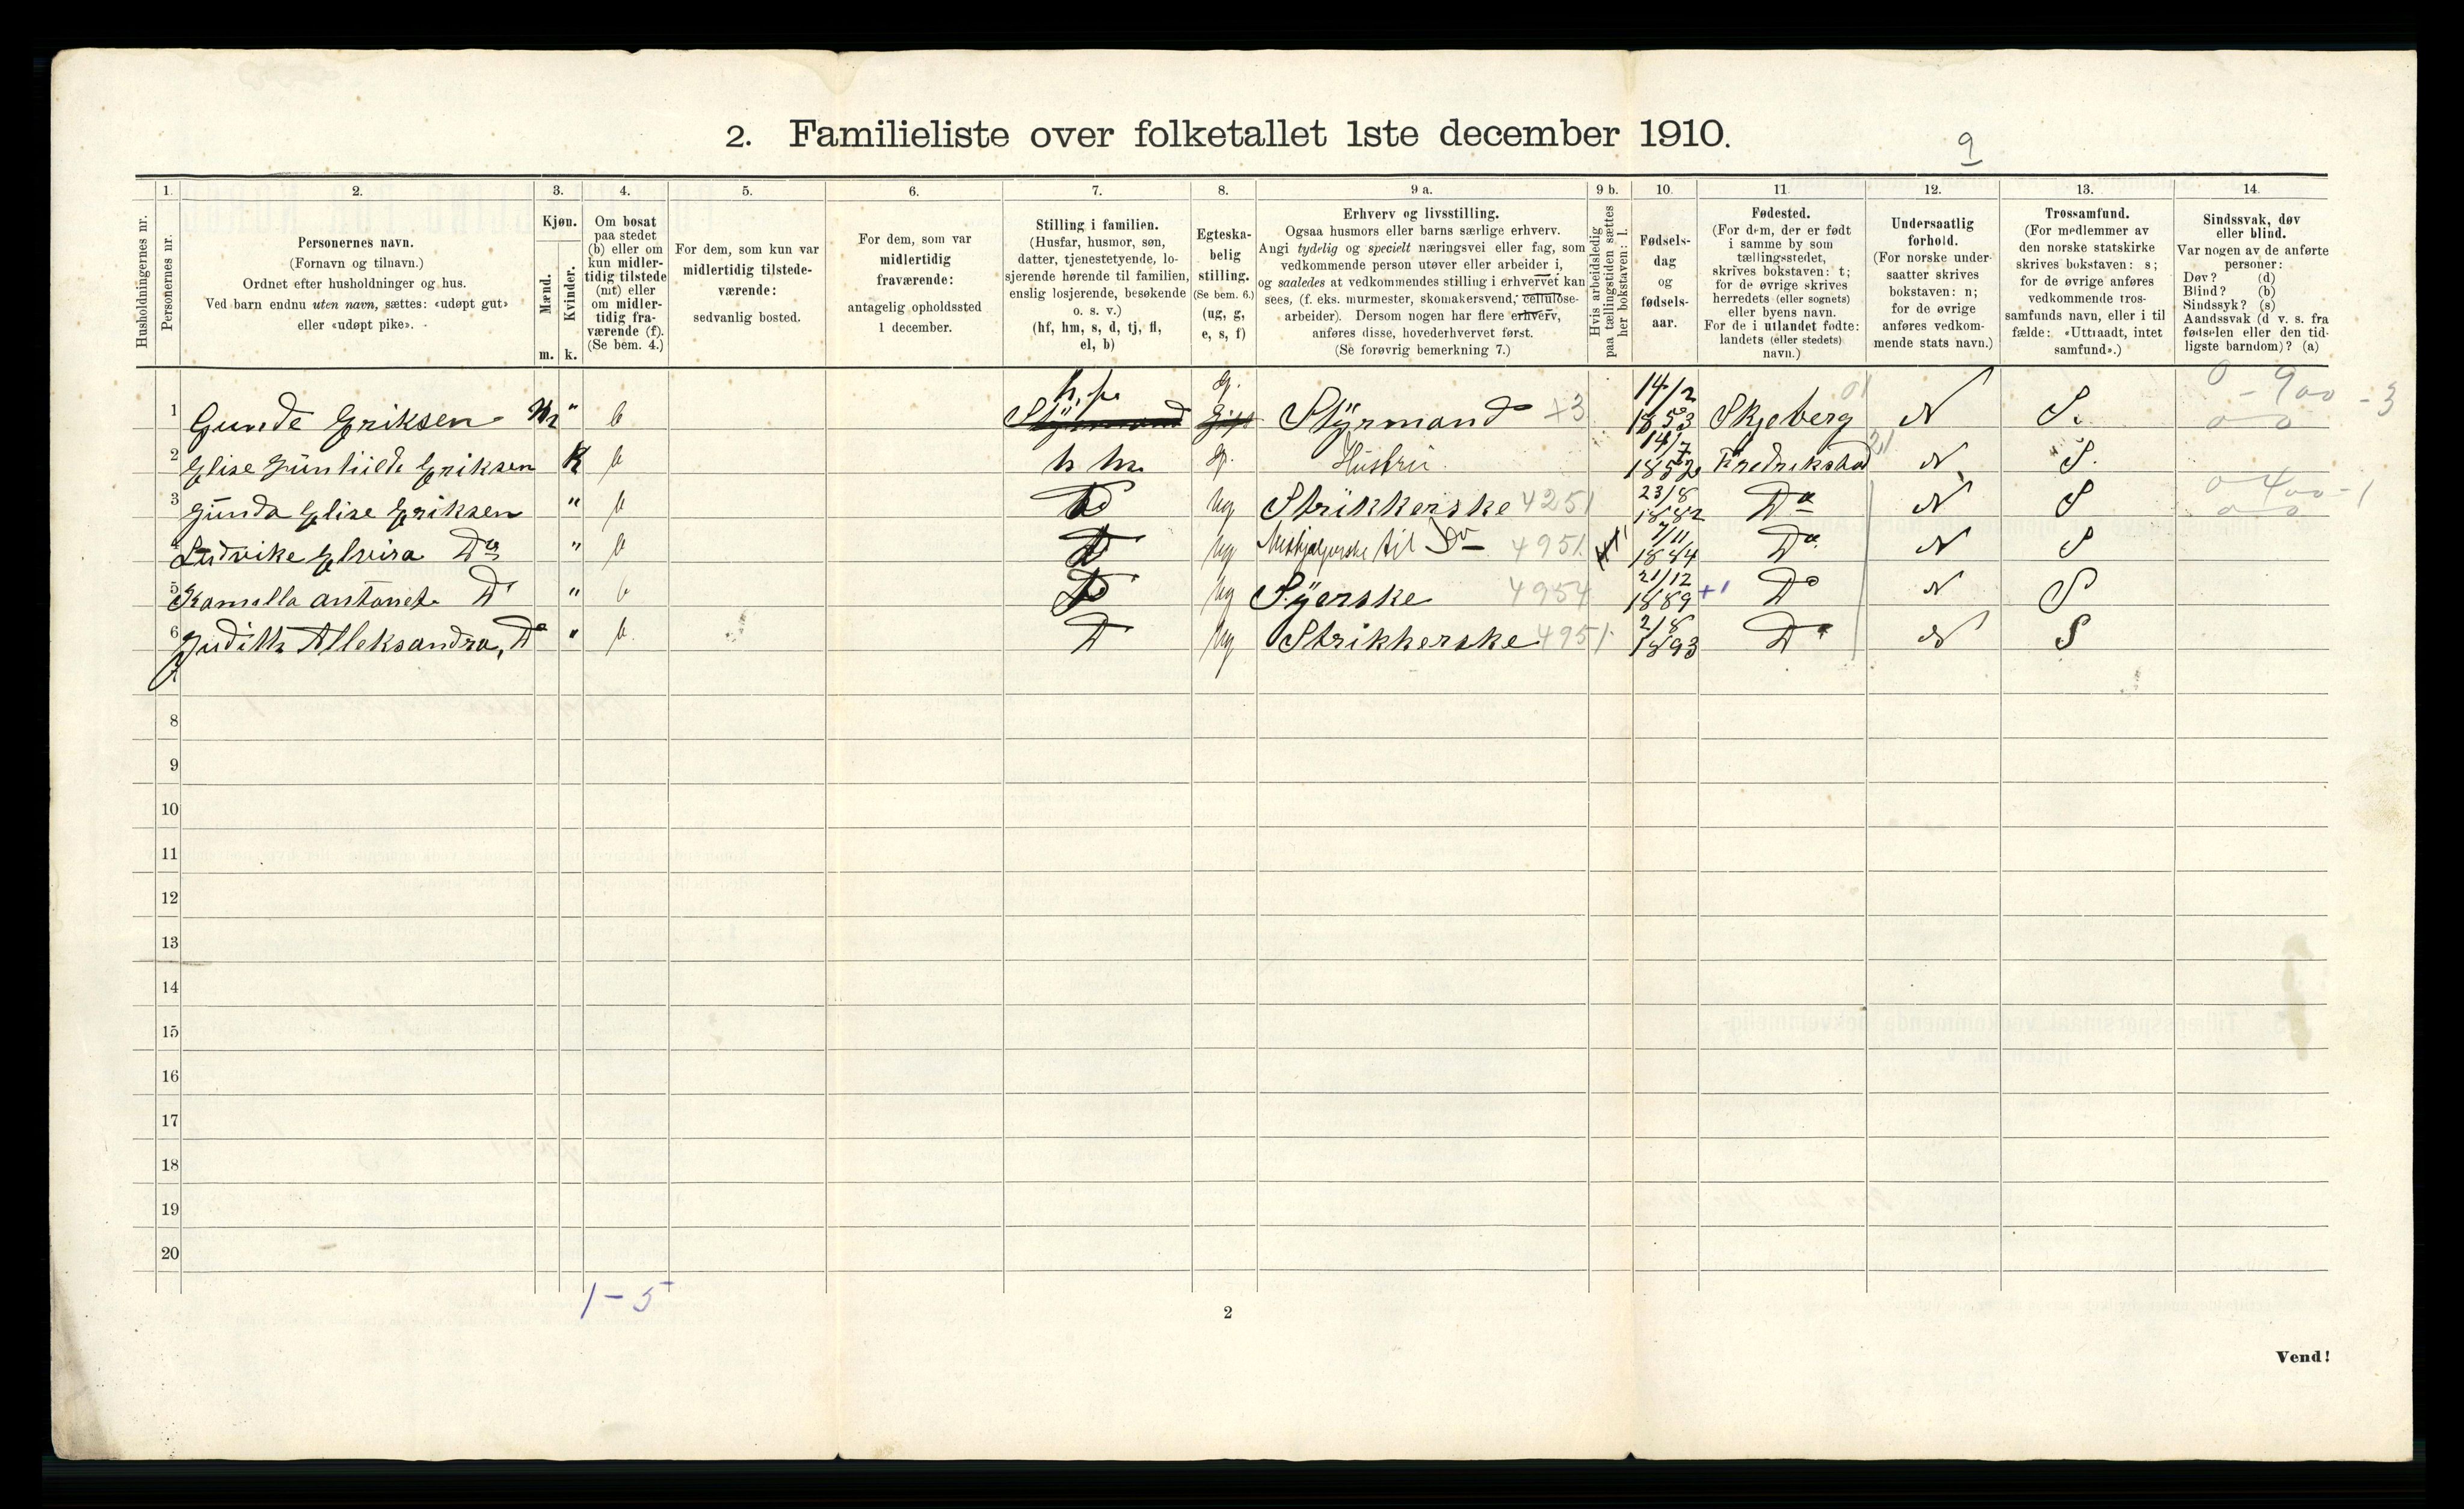 2. Familieliste over folketallet 1ste december 1910.
9
1. 2. 3. 4. 5. 6. 7. 8. 9 a. 9 b. 10. 11. 12. 13. 14.
Husholdningernes nr.
Personernes nr.
Personernes navn.
(Fornavn og tilnavn.)
Ordnet efter husholdninger og hus.
Ved barn endnu uten navn, sættes: «udøpt gut»
eller «udøpt pike».
Kjøn.
Mænd.
Kvinder.
m. k.
Om bosat
paa stedet
(b) eller om
kun midler-
tidig tilstede
(mt) eller
om midler-
tidig fra-
værende (f).
(Se bem. 4.)
For dem, som kun var
midlertidig tilstede-
værende:
sedvanlig bosted.
For dem, som var
midlertidig
fraværende:
antagelig opholdssted
1 december.
Stilling i familien.
(Husfar, husmor, søn,
datter, tjenestetyende, lo-
sjerende hørende til familien,
enslig losjerende, besøkende
o. s. v.)
(hf, hm, s, d, tj, fl,
el, b)
Egteska-
belig
stilling.
(Se bem. 6.)
(ug, g,
e, s, f)
Erhverv og livsstilling.
Ogsaa husmors eller barns særlige erhverv.
Angi tydelig og specielt næringsvei eller fag, som
vedkommende person utøver eller arbeider i,
og saaledes at vedkommendes stilling i erhvervet kan
sees, (f. eks. murmester, skomakersvend, cellulose-
arbeider). Dersom nogen har flere erhverv,
anføres disse, hovederhvervet først.
(Se forøvrig bemerkning 7.)
Hvis arbeidsledig
paa tællingstiden sættes
her bokstaven: l.
Fødsels-
dag
og
fødsels-
aar.
Fødested.
(For dem, der er født
i samme by som
tællingsstedet,
skrives bokstaven: t;
for de øvrige skrives
herredets (eller sognets)
eller byens navn.
For de i utlandet fødte:
landets (eller stedets)
navn.)
Undersaatlig
forhold.
(For norske under-
saatter skrives
bokstaven: n;
for de øvrige
anføres vedkom-
mende stats navn.)
Trossamfund.
(For medlemmer av
den norske statskirke
skrives bokstaven: s;
for de øvrige anføres
vedkommende tros-
samfunds navn, eller i til
fælde: «Uttraadt, intet
samfund».)
Sindssvak, døv
eller blind.
Var nogen av de anførte
personer:
Døv? (d)
Blind? (b)
Sindssyk? (s)
Aandssvak (d v. s. fra
fødselen eller den tid-
ligste barndom)? (a)
1 Gunde Eriksen m " b h.f. Styrmand g. Gift Styrmand +3 14/2 1853 Skjeberg 01 N S. 0 - 900 - 3
2 Elise Gunhilde Eriksen K b h m. g. Hustru 14/7 1852 Fredrikstad N S.
3 Gunda Elise Eriksen " b D ug Strikkerske 4251 23/8 1882 Do N S 0 400 - 1
4 Ludvike Elvira Do " b D ug til Do 4951 7/11 1884 Do N S
5 Kamilla Antonet. D " b D ug Syerske 4954 21/12 1889 +1 Do N S
6 Judith Alleksandra, Do " b. D ug Strikkerske 4951 2/8 1893 Do N S
8
9
10
11
12
13
14
15
16
17
18
19
20
1 - 5
2
Vend!